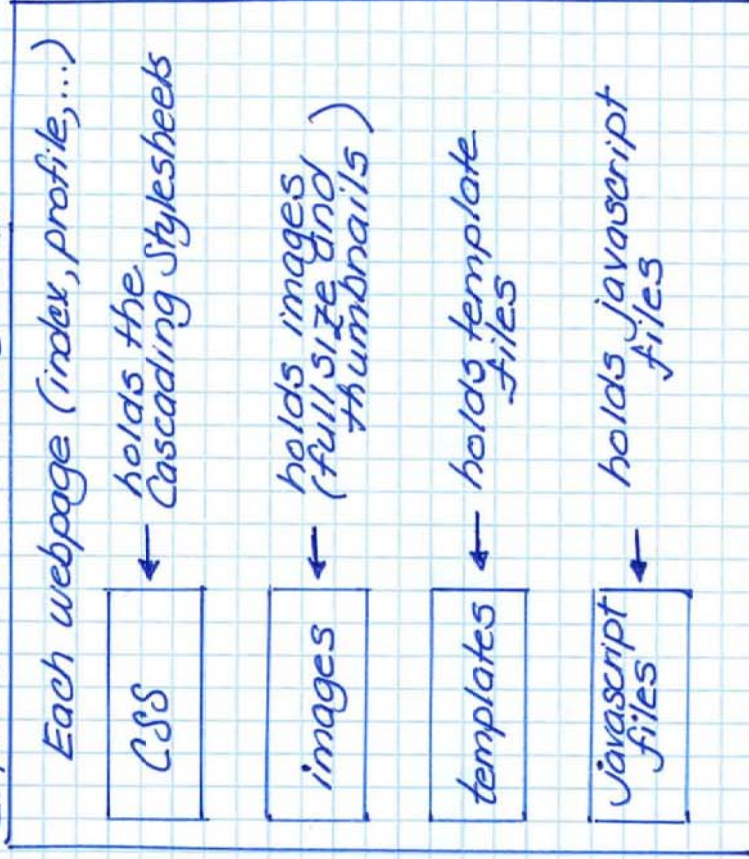 Each webpage (index, profile,...)
CSS
holds the
Cascading Stylesheets
images
holds images
(full size and
thumbnails)
templates
holds template
files
javascript
files
holds javascript
files